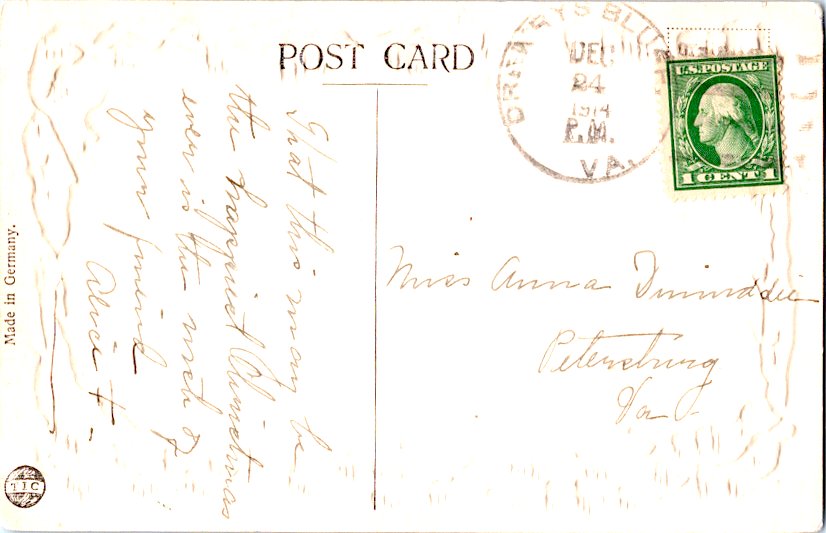 POST CARD
DREWRYS BLUFF
DEC
24
1914
P.M.
VA.
U.S. POSTAGE
1 CENT 1
That this may be
the happiest Christmas
ever is the wish of
your friend
Alice
Miss Anna
Petersburg
Va
Made in Germany.
TIC